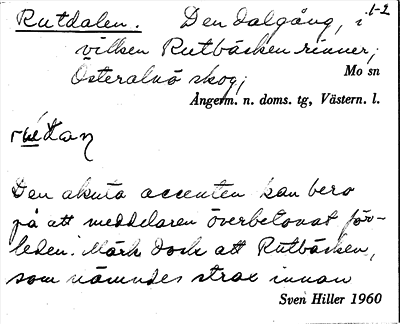 Rutdalen. Den dalgång, i 1-2
vilken Rutbäcken rinner;
Österalnö skog;
Mo sn
Ångerm. n. doms. tg, Västern. l.
Den akuta accenten kan bero
på att meddelaren överbetonat för-
leden. Märk dock att Rutbäcken,
som nämndes strax innan
Sven Hiller 1960